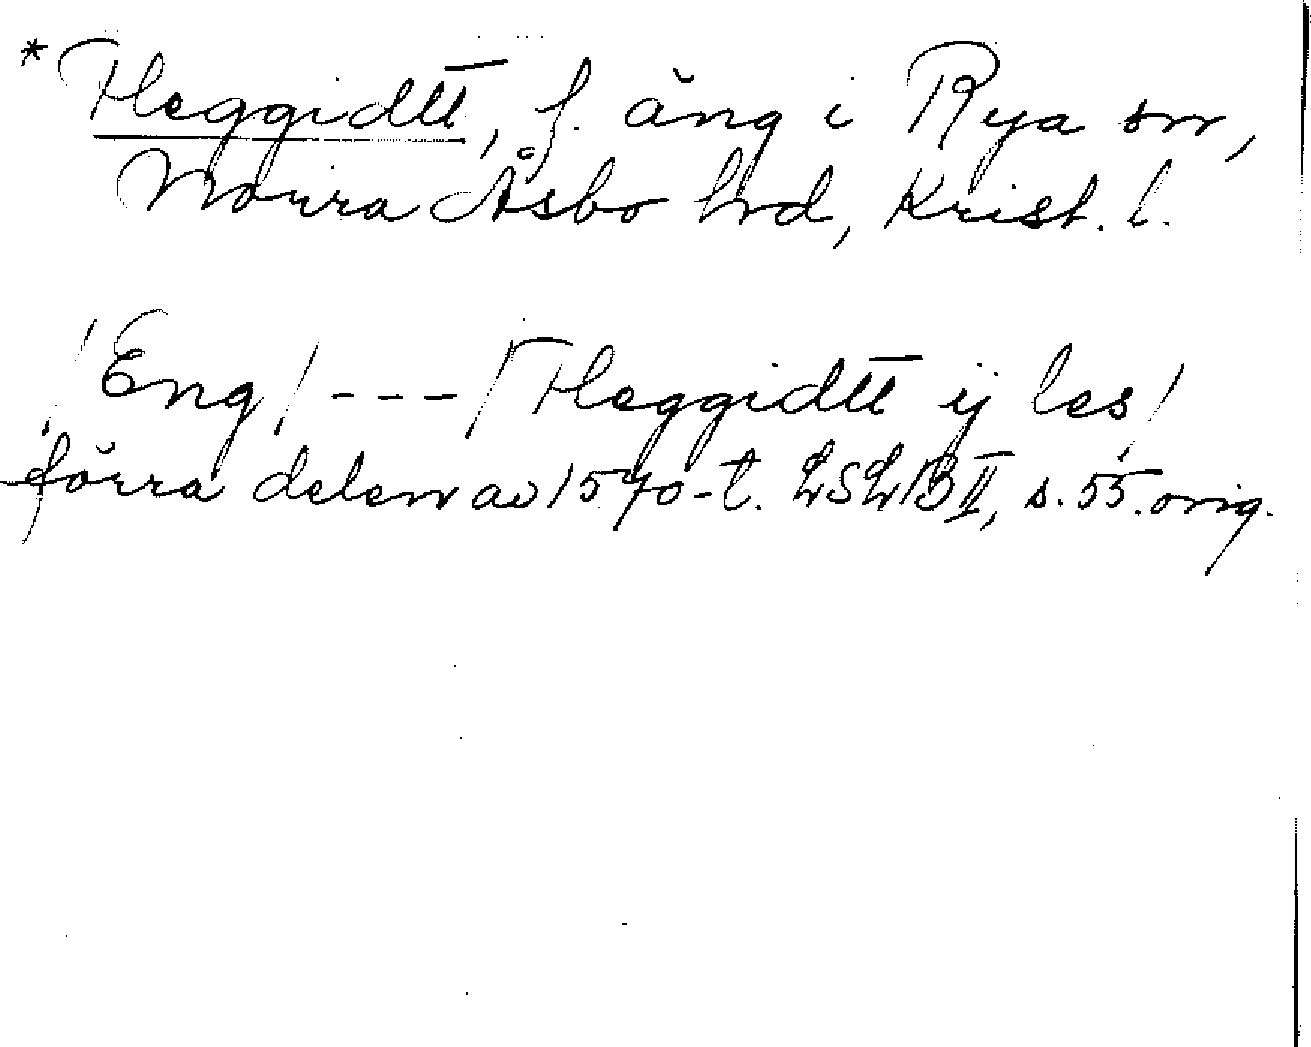 * Heggidtt̅, f. äng i Rya sn,
Norra Åsbo hrd, Krist. l.
/Eng/ --- / Heggidtt̅ ij les/
förra delen av 1570-t. LSLB II, s. 55. orig.